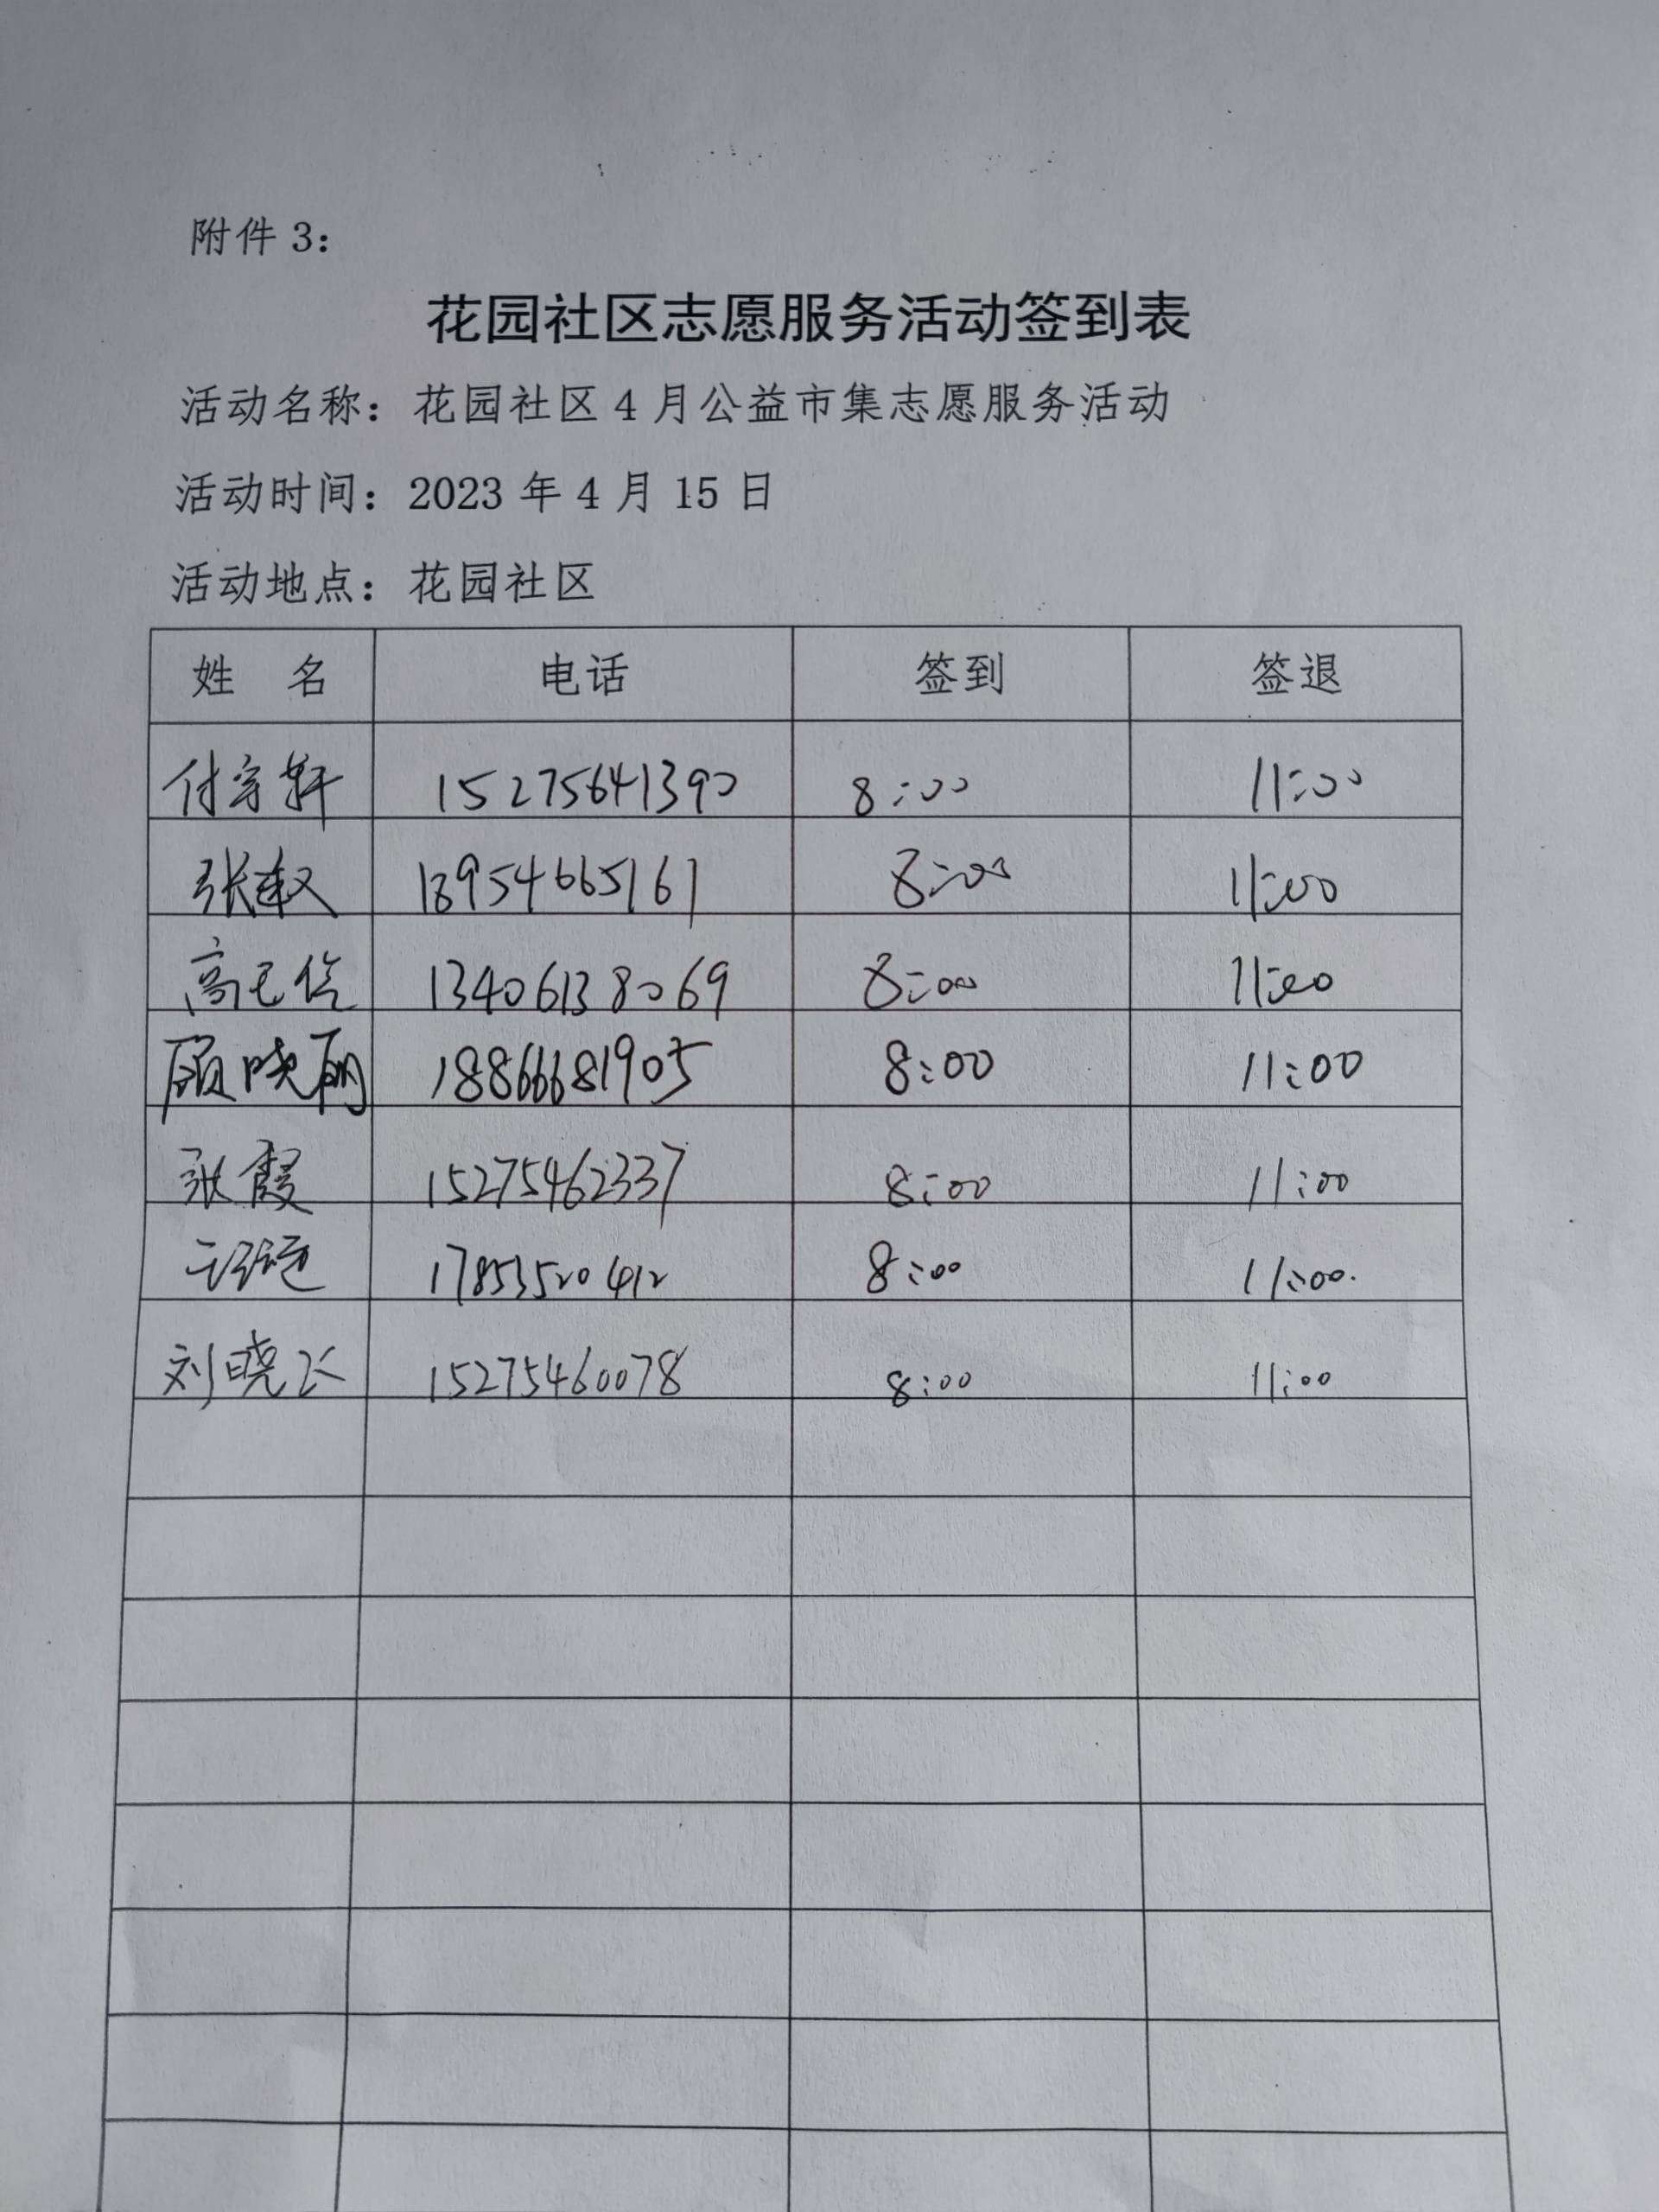 附件 3：
花园社区志愿服务活动签到表
活动名称：花园社区 4 月公益市集志愿服务活动
活动时间：2023 年 4 月 15 日
活动地点：花园社区
姓 名 电话 签到 签退
付宗轩 15275641390 8:00 11:00
张 13954665161 8:00 11:00
高 13406138069 8:00 11:00
顾晓丽 18866681905 8:00 11:00
张霞 15275462337 8:00 11:00
17853520412 8:00 11:00.
刘晓飞 15275460078 8:00 11:00